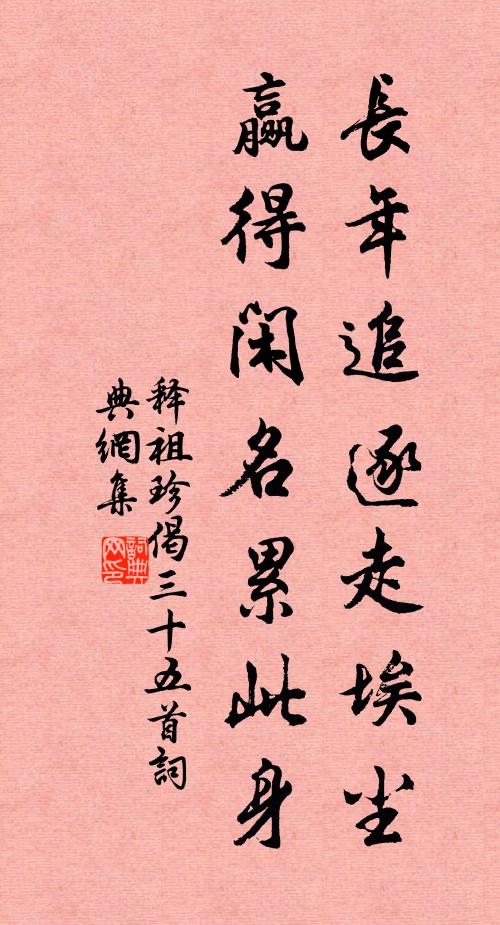 長年追逐走埃尘
贏得閑名累此身
释祖珍偈三十五首詞
典網集
詞典
网印